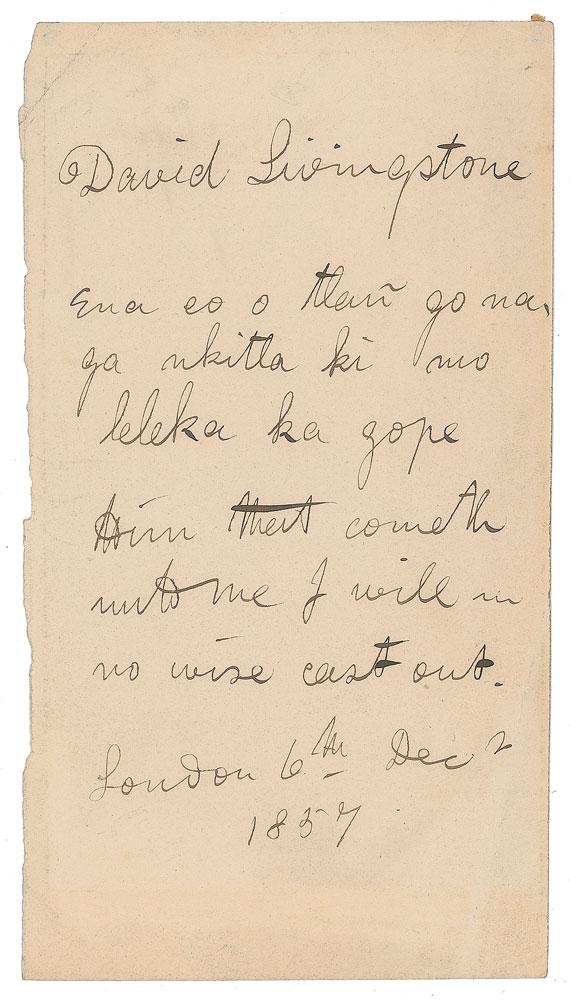 David Livingstone
Ena eo o tlañ go na,
ga nkitla ki mo
leleka ka gope
Him that cometh
unto me I will in
no wise cast out.
London 6th Decr
1857